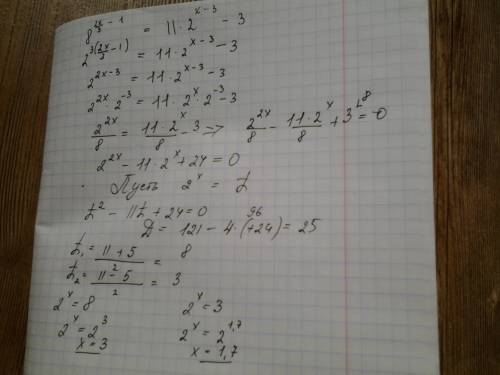 8^{\frac{2x}{3} - 1} = 11 \cdot 2^{x-3} - 3
2^{3(\frac{2x}{3} - 1)} = 11 \cdot 2^{x-3} - 3
2^{2x-3} = 11 \cdot 2^{x-3} - 3
2^{2x} \cdot 2^{-3} = 11 \cdot 2^{x} \cdot 2^{-3} - 3
\frac{2^{2x}}{8} = \frac{11 \cdot 2^{x}}{8} - 3 => \frac{2^{2x}}{8} - \frac{11 \cdot 2^{x}}{8} + 3^{L8} = 0
2^{2x} - 11 \cdot 2^{x} + 24 = 0
Пусть 2^{x} = t
t^2 - 11t + 24 = 0
96
D = 121 - 4 \cdot (+24) = 25
t_1 = \frac{11 + 5}{2} = 8
t_2 = \frac{11 - 5}{2} = 3
2^x = 8 2^x = 3
2^x = 2^3 2^x = 2^{1,7}
x = 3 x = 1,7